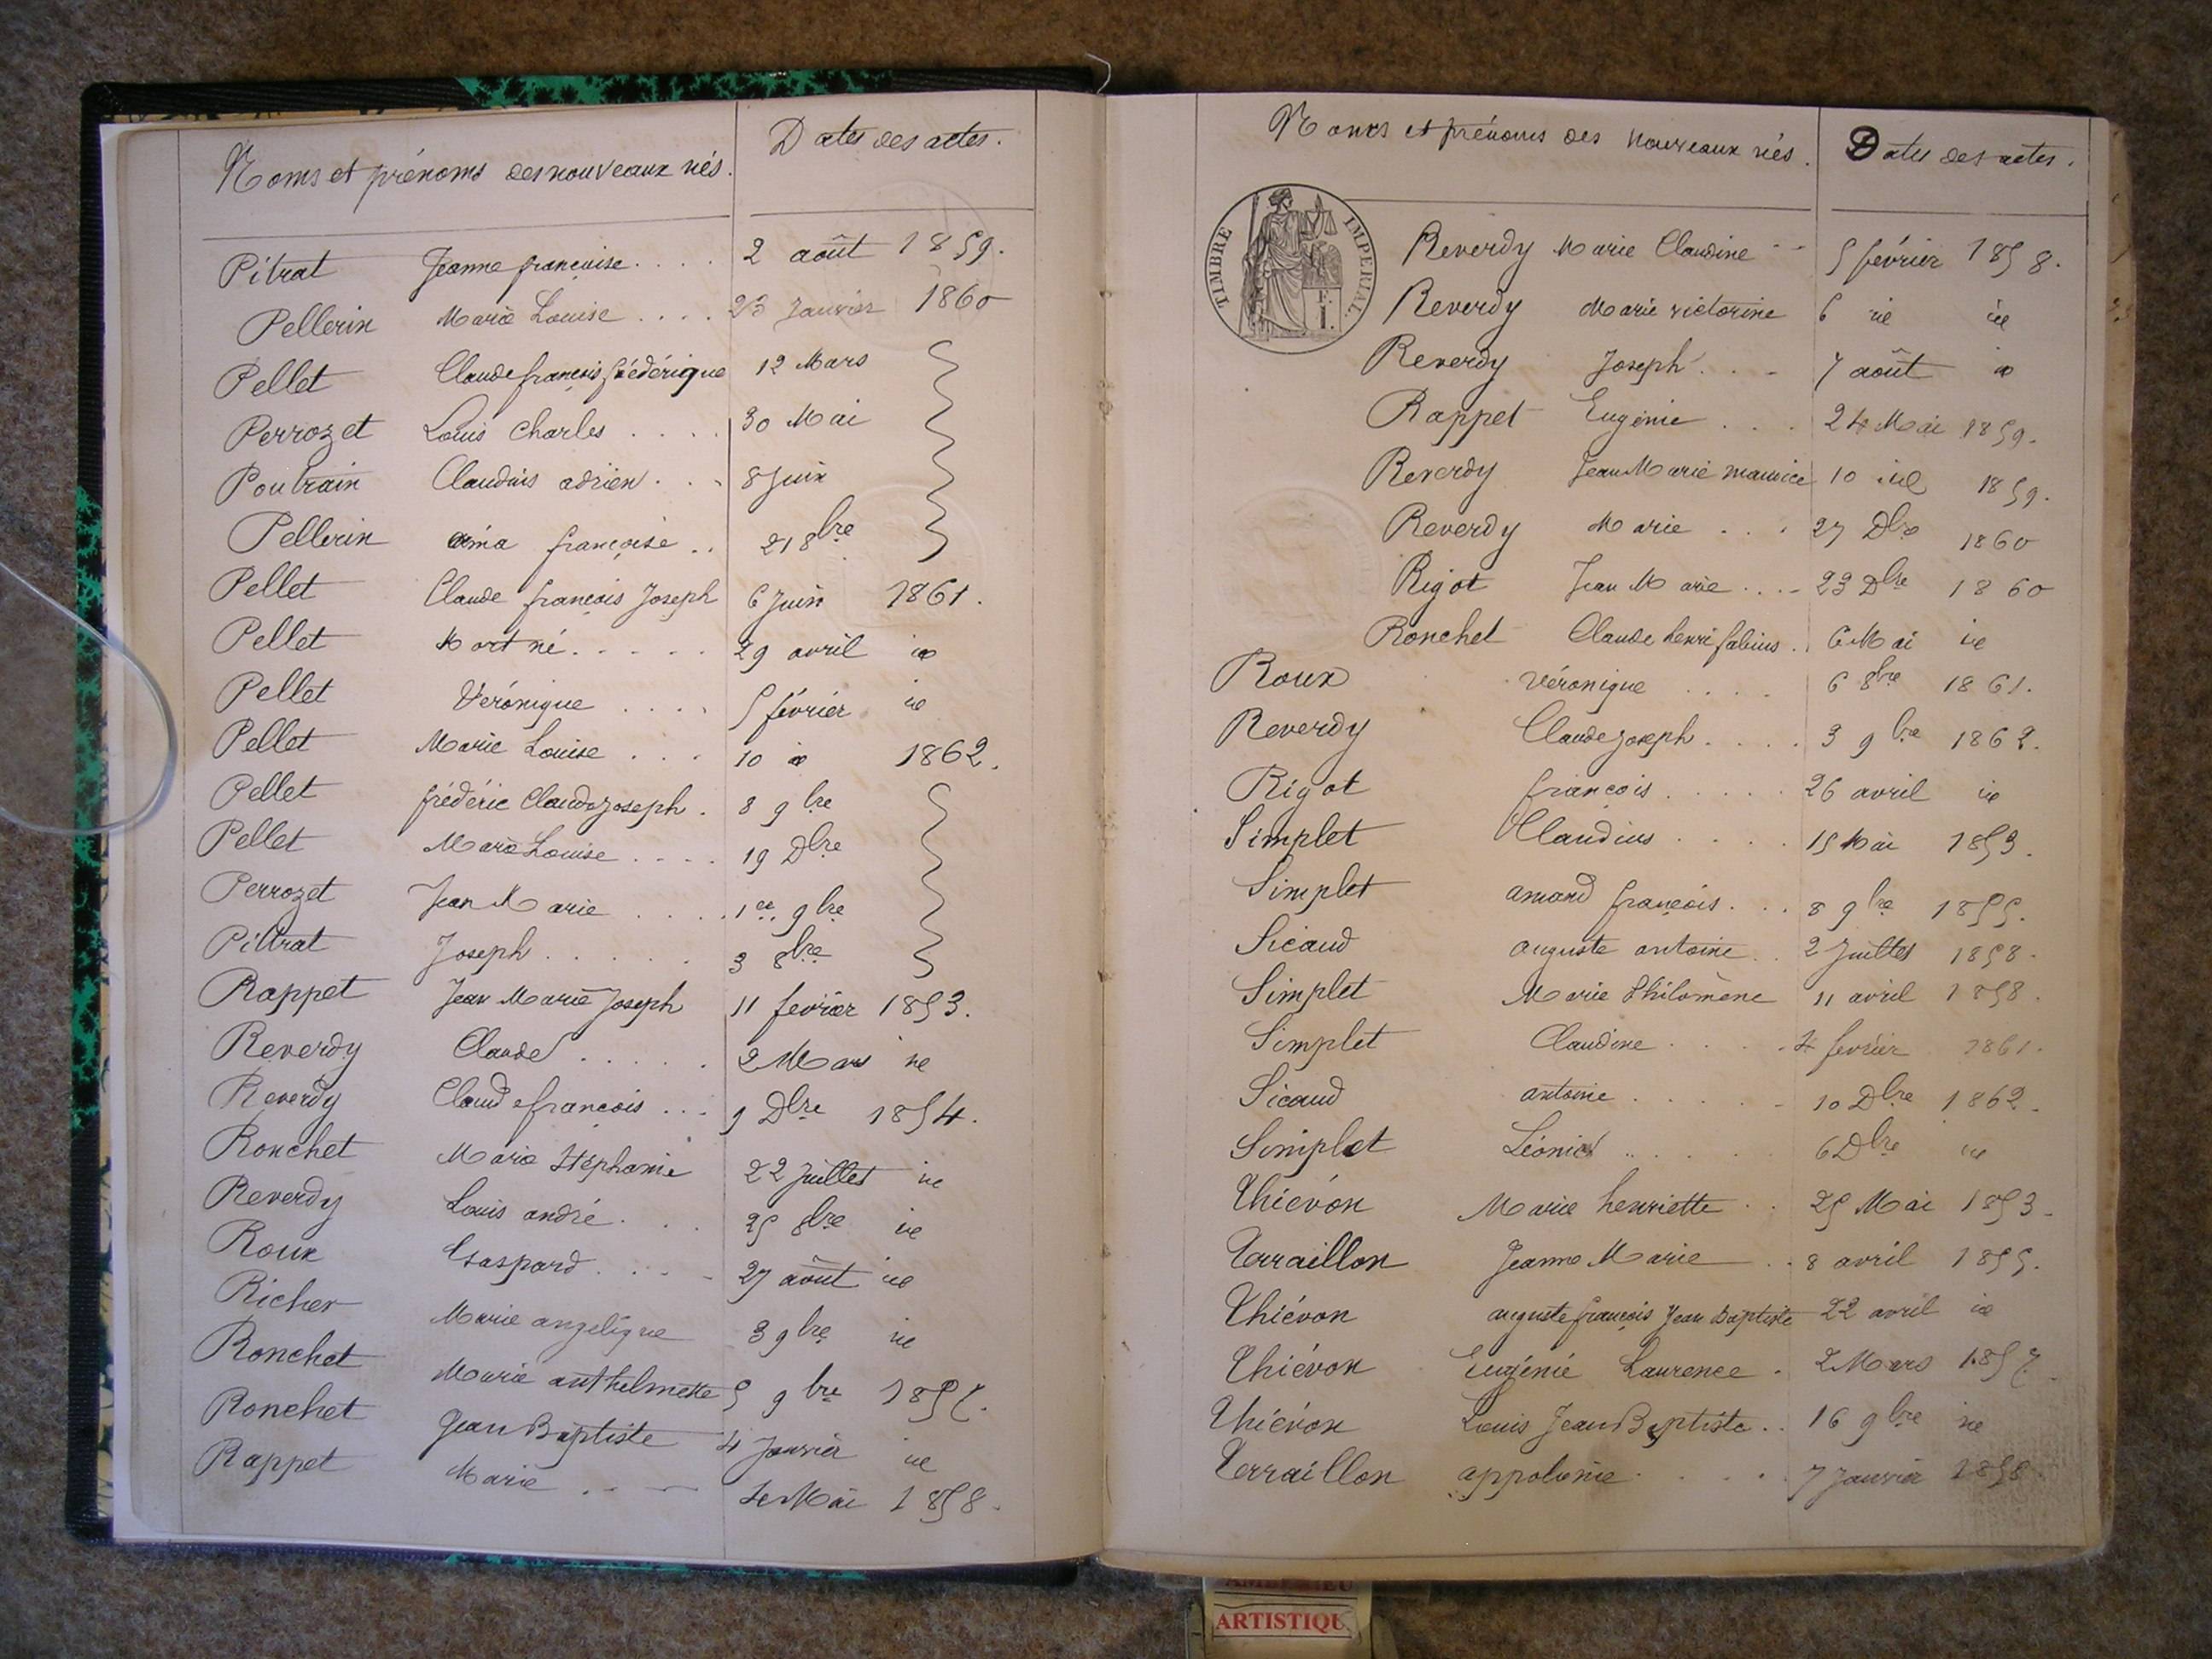 Noms et prénoms des nouveaux nés. Dates des actes.
Pitrat Jeanne françoise .... 2 août 1859.
Pellerin Marie Louise .... 23 Janvier 1860
Pellet Claude françois frédérique 12 Mars
Perrozet Louis Charles .... 30 Mai
Poutrain Claudius adrien ... 8 Juin
Pellerin françoise .. 21 8bre
Pellet Claude françois Joseph 6 Juin 1861.
Pellet Mort né ..... 29 avril id
Pellet Véronique .... 5 février id
Pellet Marie Louise .... 10 id 1862.
Pellet frédéric Claude Joseph . 8 9bre
Pellet Marie Louise .... 19 Dbre
Perrozet Jean Marie .... 1er 9bre
Pittrat Joseph ...... 3 8bre
Rappet Jean Marie Joseph 11 fevrier 1853.
Reverdy Claude ..... 2 Mars id
Reverdy Claude francois ... 9 Dbre 1854.
Ronchet Marie Stéphanie 22 Juillet id
Reverdy Louis andré ... 25 8bre id
Roux Gaspard .... 27 août id
Richer Marie angelique 3 9bre id
Ronchet Marie anthelmette 5 9bre 1857.
Ronchet Jean Baptiste 4 Janvier id
Rappet Marie .. 4 Mai 1858.
Noms et prénoms des nouveaux nés. Dates des actes.
TIMBRE IMPERIAL.
E.
I.
Reverdy Marie Claudine -- 5 février 1858.
Reverdy Marie victorine 6 id id
Reverdy Joseph ... 7 août id
Rappet Eugénie ... 24 Mai 1859.
Reverdy Jean Marie maurice 10 id 1859.
Reverdy Marie ... 27 Dbre 1860
Rigot Jean Marie .... 23 Dbre 1860
Ronchet Claude henri fabius . 6 Mai id
Roux Véronique .... 6 8bre 1861.
Reverdy Claude Joseph .... 3 9bre 1862.
Rigot françois ..... 26 avril id
Simplet Claudius .... 15 Mai 1853.
Simplet amand françois ... 8 9bre 1855.
Sicaud auguste antoine .. 2 Juillet 1858.
Simplet Marie Philomène 11 avril 1858.
Simplet Claudine .... 4 fevrier 1861.
Sicaud antoine ..... 10 Dbre 1862.
Simplet ..... 6 Dbre id
Thiévon Marie henriette .. 25 Mai 1853.
Terraillon Jeanne Marie .. 8 avril 1855.
Thiévon auguste françois Jean Baptiste 22 avril id
Thiévon Eugénie Laurence . 2 Mars 1857.
Thiévon Louis Jean Baptiste .. 16 9bre id
Terraillon appolonie .... 7 Janvier 1858
ARTISTIQU